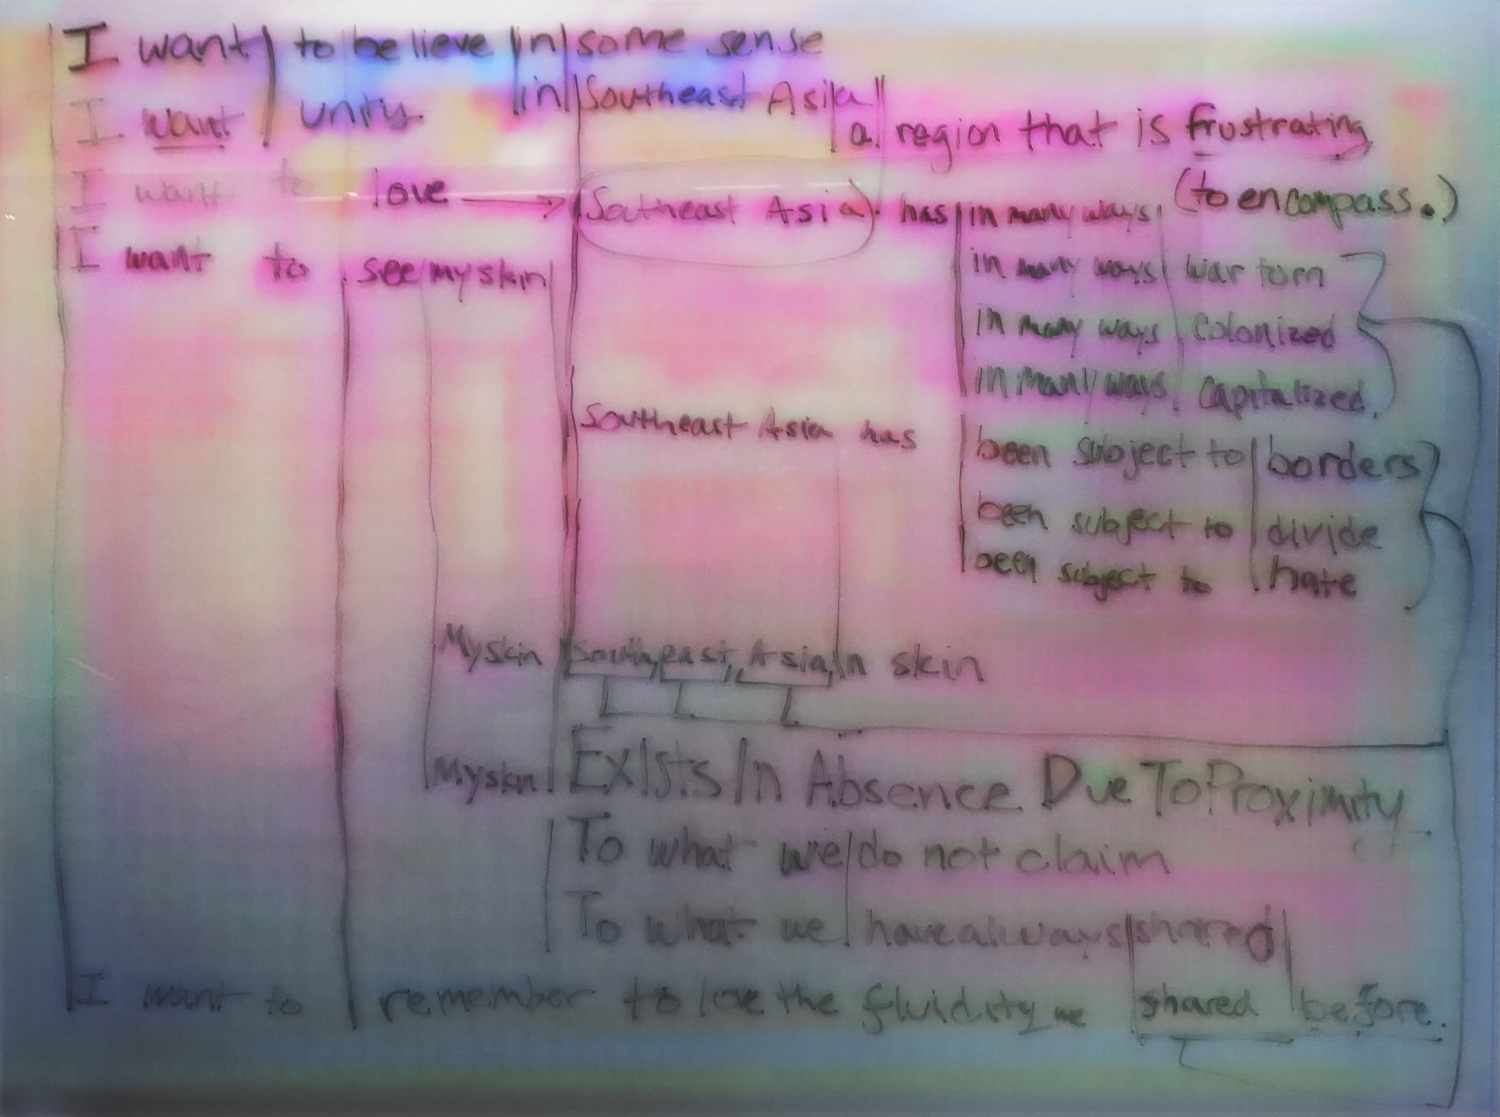 I want to believe in some sense
I want unity. in Southeast Asia
a region that is frustrating
I want to love Southeast Asia has in many ways (to encompass.)
I want to see my skin in many ways war torn
in many ways colonized
in many ways capitalized.
Southeast Asia has been subject to borders
been subject to divide
been subject to hate
My skin South, east, Asia, in skin
My skin Exists In Absence Due To Proximity
To what we do not claim
To what we have always shared
I want to remember to love the fluidity we shared before.